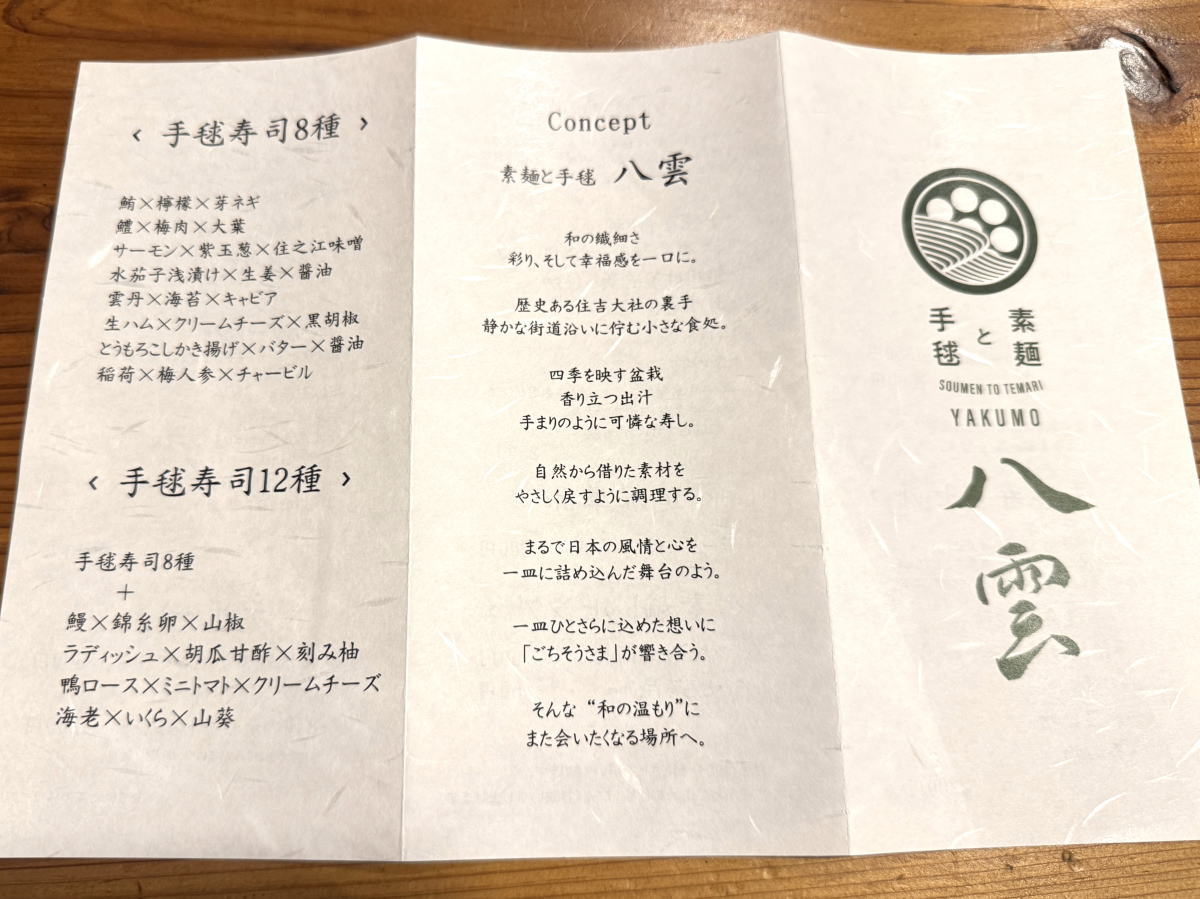 ‹ 手毬寿司8種 ›
鮪×檸檬×芽ネギ
鱧×梅肉×大葉
サーモン×紫玉葱×住之江味噌
水茄子浅漬け×生姜×醤油
雲丹×海苔×キャビア
生ハム×クリームチーズ×黒胡椒
とうもろこしかき揚げ×バター×醤油
稲荷×梅人参×チャービル
‹ 手毬寿司12種 ›
手毬寿司8種
+
鰻×錦糸卵×山椒
ラディッシュ×胡瓜甘酢×刻み柚
鴨ロース×ミニトマト×クリームチーズ
海老×いくら×山葵
Concept
素麺と手毬 八雲
和の繊細さ
彩り、そして幸福感を一口に。
歴史ある住吉大社の裏手
静かな街道沿いに佇む小さな食処。
四季を映す盆栽
香り立つ出汁
手まりのように可憐な寿し。
自然から借りた素材を
やさしく戻すように調理する。
まるで日本の風情と心を
一皿に詰め込んだ舞台のよう。
一皿ひとさらに込めた想いに
「ごちそうさま」が響き合う。
そんな “和の温もり”に
また会いたくなる場所へ。
素麺
と
手毬
SOUMEN TO TEMARI
YAKUMO
八雲